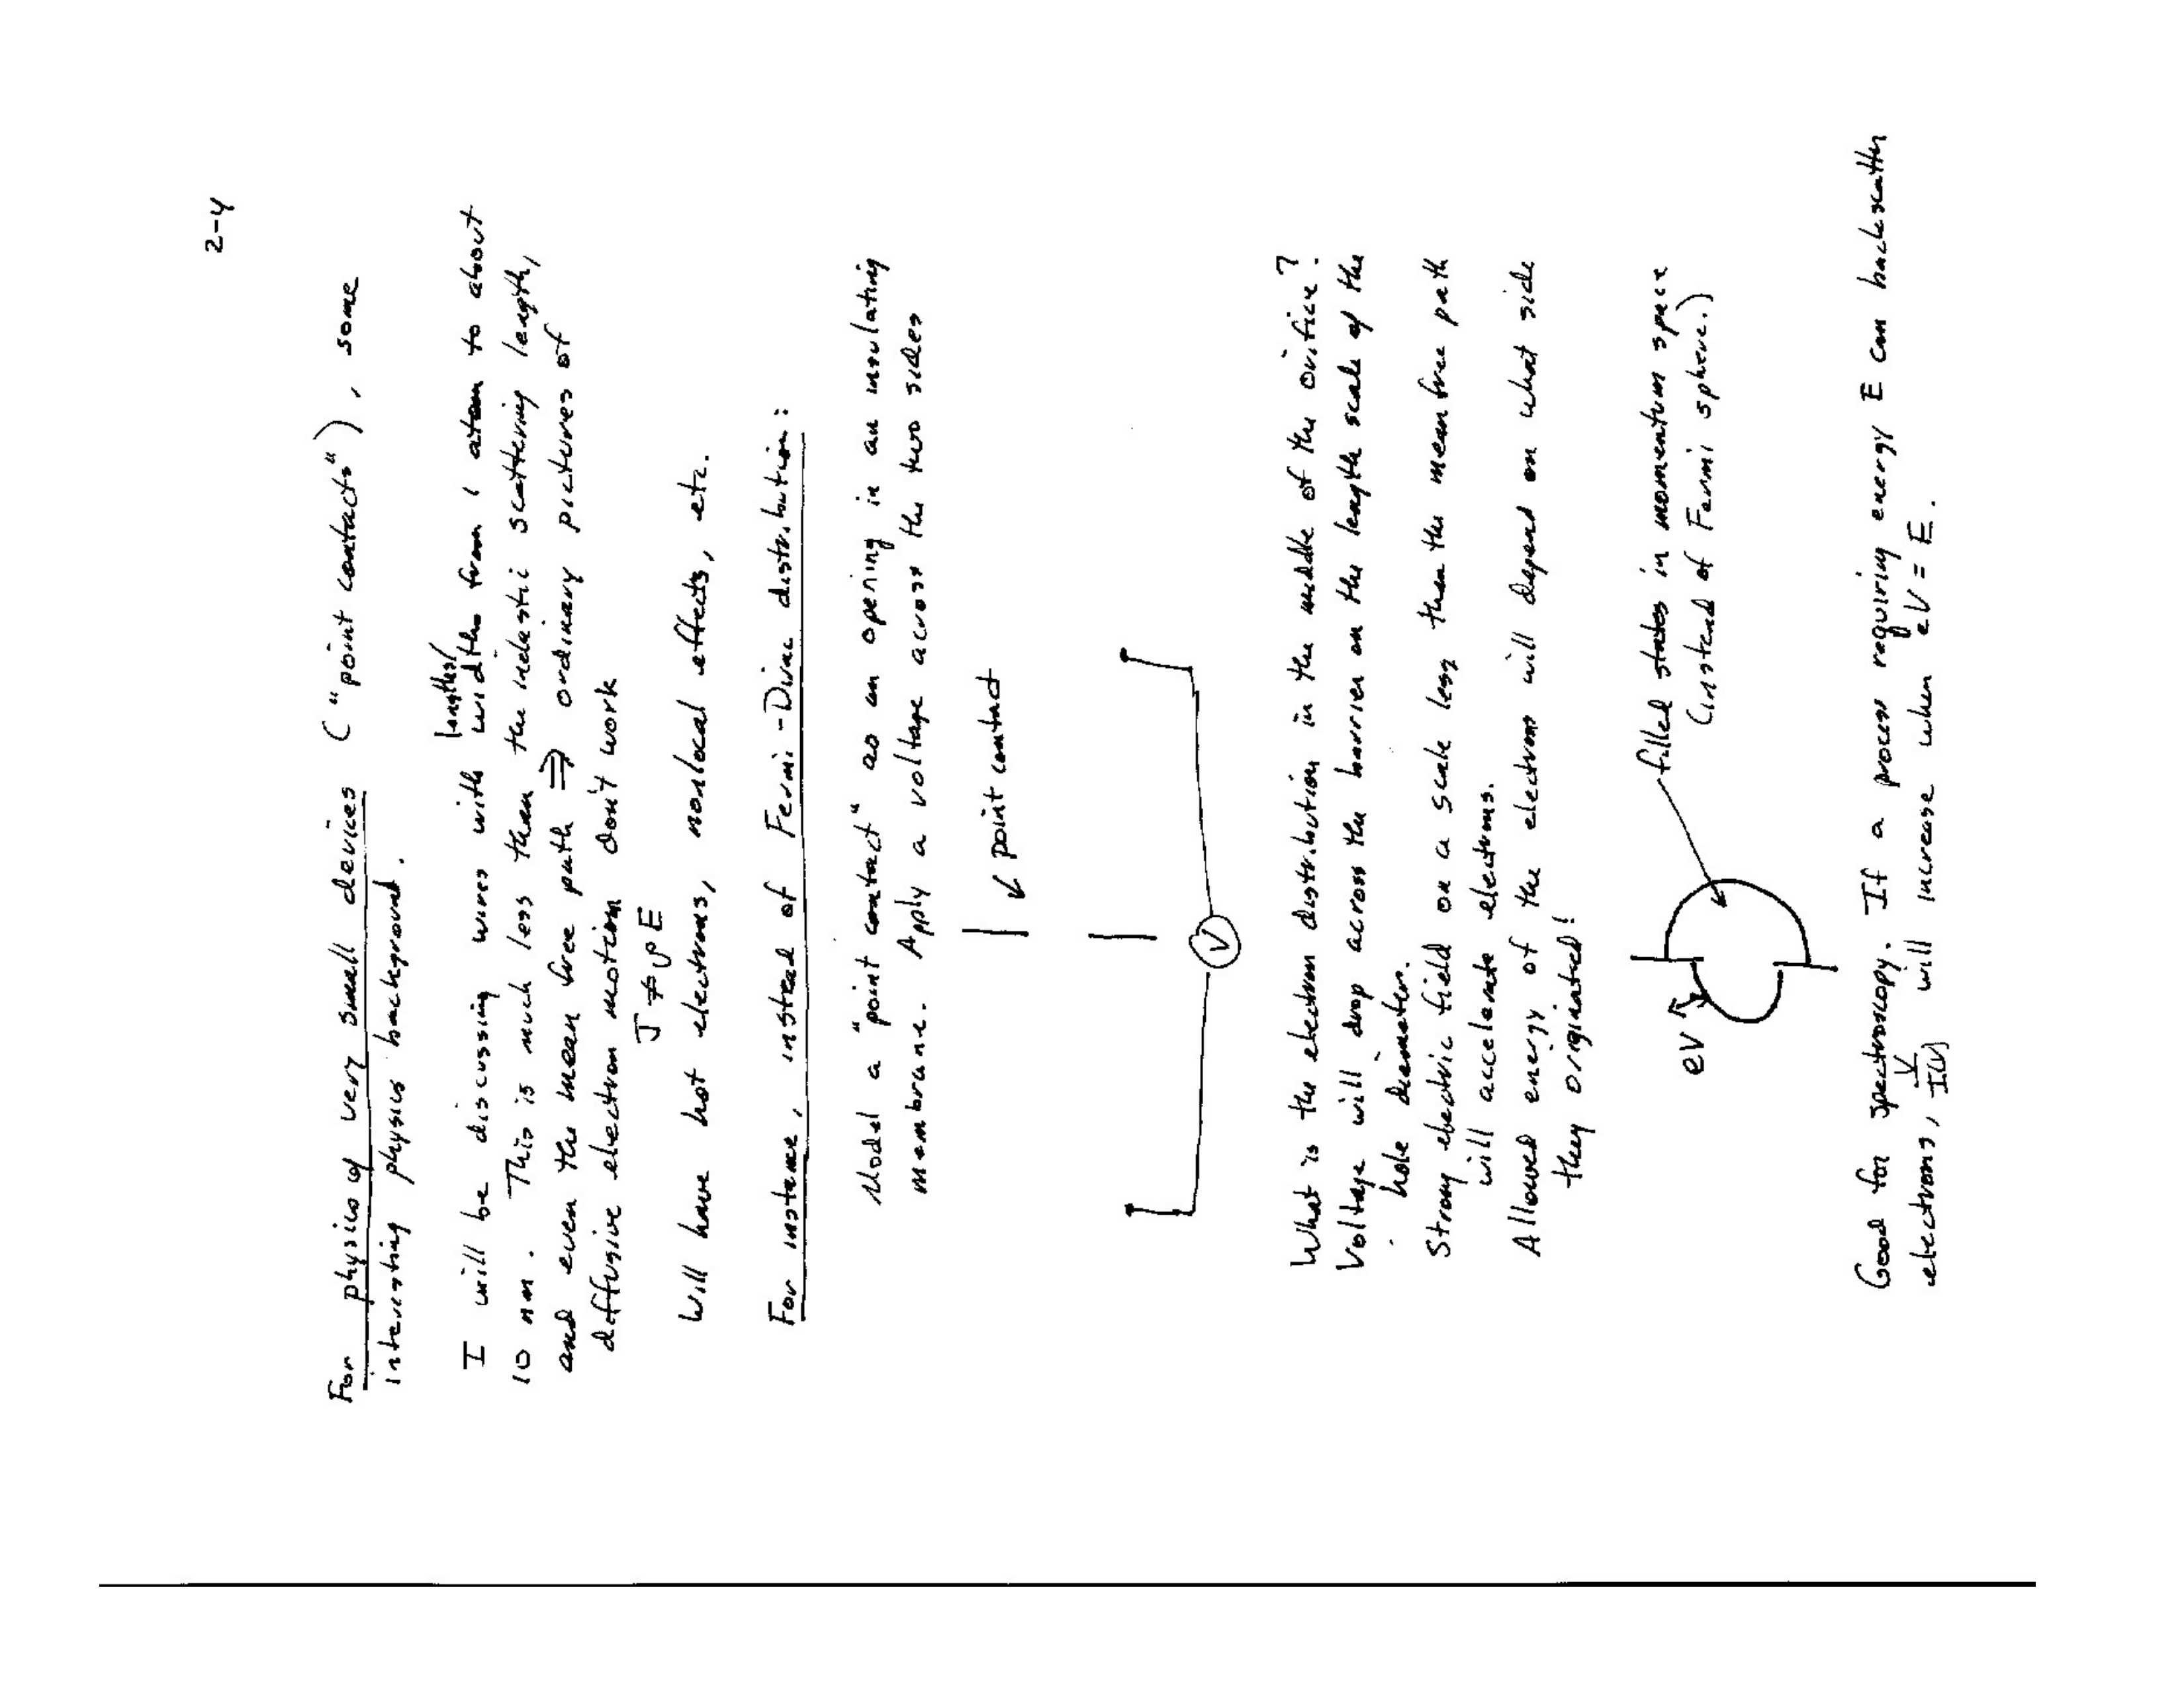 2-4
For physics of very small devices ("point contacts"), some
interesting physics background.
lengths/
I will be discussing wires with widths from 1 atom to about
10 nm. This is much less than the inelastic scattering length,
and even the mean free path ⇒ ordinary pictures of
diffusive electron motion don't work
J ≠ σE
Will have hot electrons, nonlocal effects, etc.
For instance, instead of Fermi-Dirac distribution:
Model a "point contact" as an opening in an insulating
membrane. Apply a voltage across the two sides
point contact
V
What is the electron distribution in the middle of the orifice?
Voltage will drop across the barrier on the length scale of the
hole diameter.
Strong electric field on a scale less than the mean free path
will accelerate electrons.
Allowed energy of the electron will depend on what side
they originated!
filled states in momentum space
(instead of Fermi sphere.)
eV
Good for spectroscopy. If a process requiring energy E can backscatter
electrons, V/I(V) will increase when eV = E.